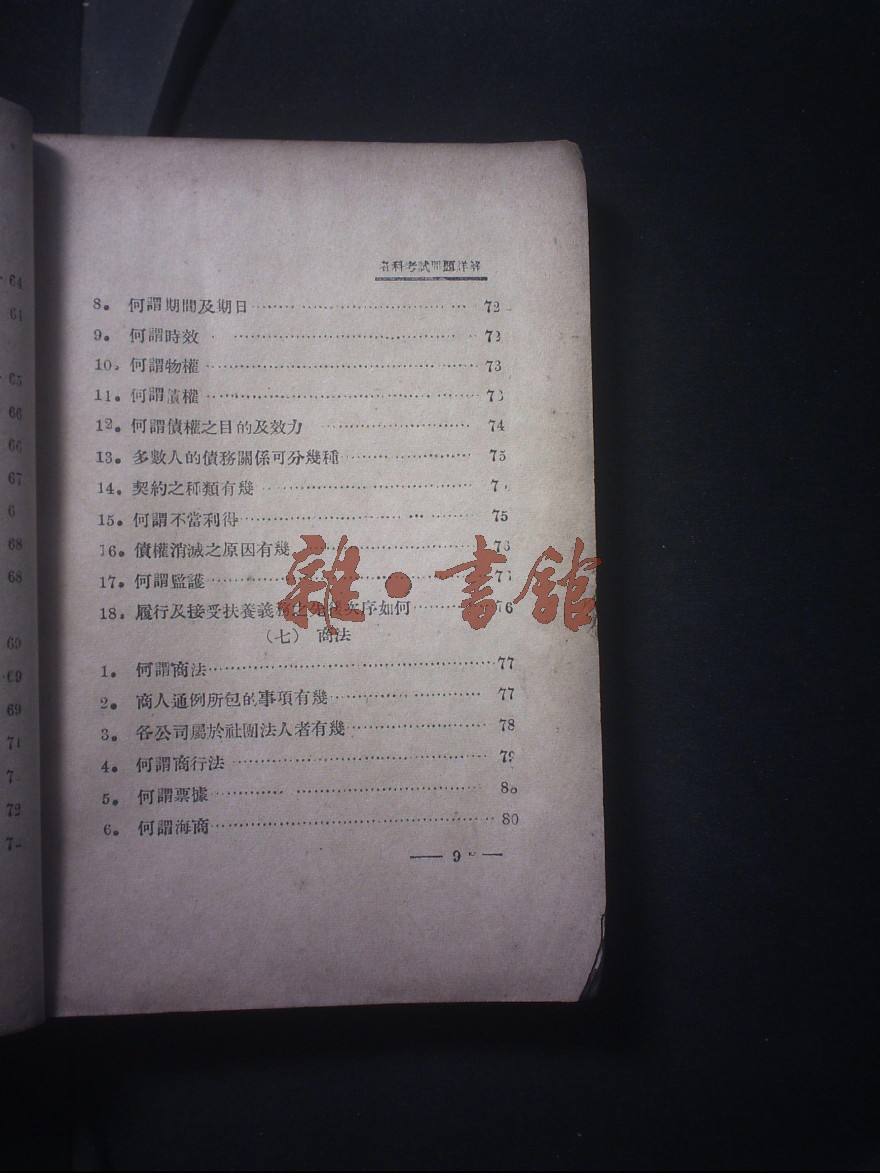 各科考試問題詳解
8. 何謂期間及期日……72
9. 何謂時效……72
10. 何謂物權……73
11. 何謂債權……73
12. 何謂債權之目的及效力……74
13. 多數人的債務關係可分幾種……75
14. 契約之種類有幾……7
15. 何謂不當利得……75
16. 債權消滅之原因有幾……76
17. 何謂監護……7
18. 履行及接受扶養義務之先後次序如何……76
(七) 商法
1. 何謂商法……77
2. 商人通例所包的事項有幾……77
3. 各公司屬於社團法人者有幾……78
4. 何謂商行法……79
5. 何謂票據……80
6. 何謂海商……80
— 9 —
雜·書館
64
64
65
66
66
67
6
68
68
69
69
69
71
7
72
7